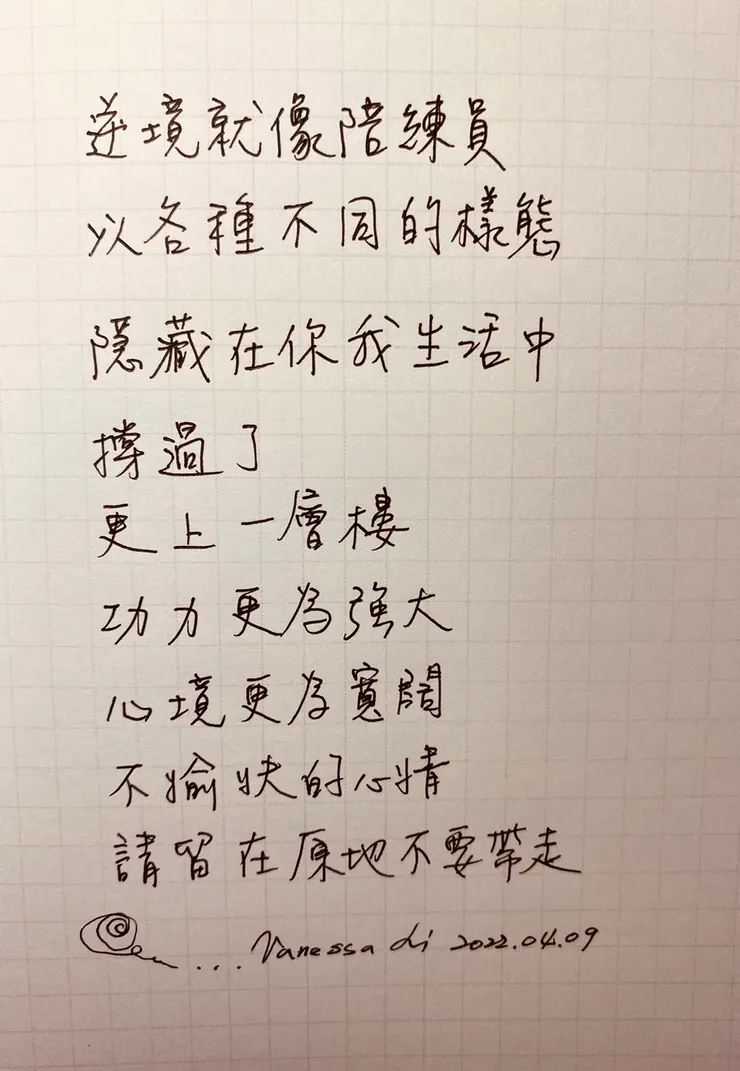 逆境就像陪練員
以各種不同的樣態
隱藏在你我生活中
撐過了
更上一層樓
功力更為強大
心境更為寬闊
不愉快的心情
請留在原地不要帶走
... Vanessa Li 2022.04.09